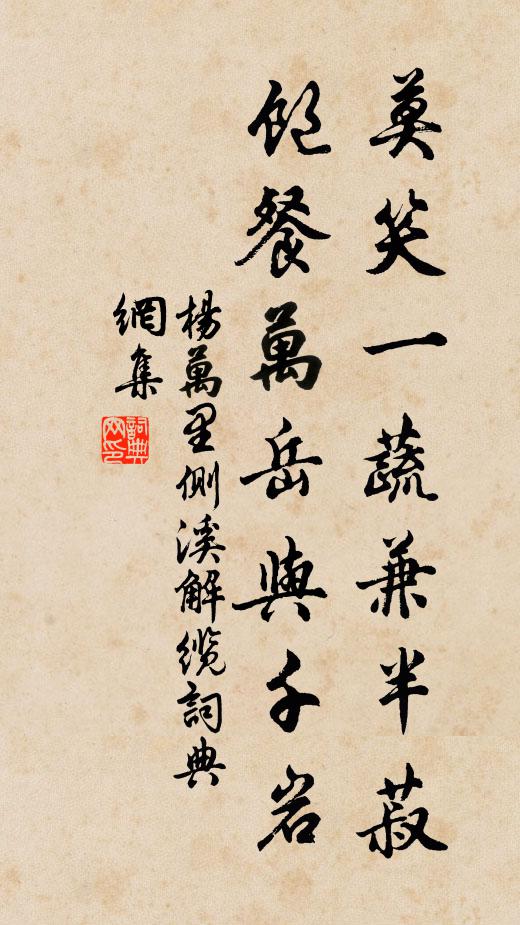 莫笑一蔬兼半菽
飽餐萬岳與千岩
楊萬里側溪解纜詞典
網集
詞典網印